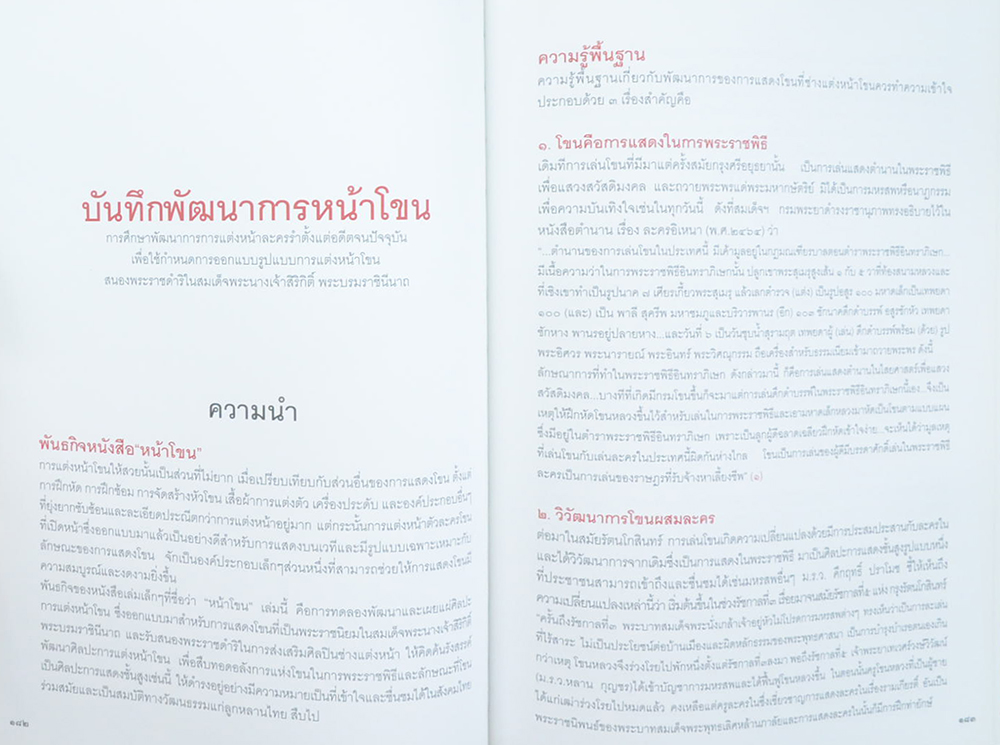 บันทึกพัฒนาการหน้าโขน
การศึกษาพัฒนาการการแต่งหน้าละครรำตั้งแต่อดีตจนปัจจุบัน
เพื่อใช้กำหนดการออกแบบรูปแบบการแต่งหน้าโขน
สนองพระราชดำริในสมเด็จพระนางเจ้าสิริกิติ์ พระบรมราชินีนาถ
ความนำ
พันธกิจหนังสือ“หน้าโขน”
การแต่งหน้าโขนให้สวยนั้นเป็นส่วนที่ไม่ยาก เมื่อเปรียบเทียบกับส่วนอื่นของการแสดงโขน ตั้งแต่
การฝึกหัด การฝึกซ้อม การจัดสร้างหัวโขน เสื้อผ้าการแต่งตัว เครื่องประดับ และองค์ประกอบอื่นๆ
ที่ยุ่งยากซับซ้อนและละเอียดประณีตกว่าการแต่งหน้าอยู่มาก แต่กระนั้นการแต่งหน้าตัวละครโขน
ที่เปิดหน้าซึ่งออกแบบมาแล้วเป็นอย่างดีสำหรับการแสดงบนเวทีและมีรูปแบบเฉพาะเหมาะกับ
ลักษณะของการแสดงโขน จักเป็นองค์ประกอบเล็กๆส่วนหนึ่งที่สามารถช่วยให้การแสดงโขนมี
ความสมบูรณ์และงดงามยิ่งขึ้น
พันธกิจของหนังสือเล่มเล็กๆที่ชื่อว่า “หน้าโขน” เล่มนี้ คือการทดลองพัฒนาและเผยแผ่ศิลปะ
การแต่งหน้าโขน ซึ่งออกแบบมาสำหรับการแสดงโขนที่เป็นพระราชนิยมในสมเด็จพระนางเจ้าสิริกิติ์
พระบรมราชินีนาถ และรับสนองพระราชดำริในการส่งเสริมศิลปินช่างแต่งหน้า ให้คิดค้นรังสรรค์
พัฒนาศิลปะการแต่งหน้าโขน เพื่อสืบทอดอลังการแห่งโขนในการพระราชพิธีและลักษณะที่โขน
เป็นศิลปะการแสดงชั้นสูงเช่นนี้ ให้ดำรงอยู่อย่างมีความหมายเป็นที่เข้าใจและชื่นชมได้ในสังคมไทย
ร่วมสมัยและเป็นสมบัติทางวัฒนธรรมแก่ลูกหลานไทย สืบไป
๑๘๒
ความรู้พื้นฐาน
ความรู้พื้นฐานเกี่ยวกับพัฒนาการของการแสดงโขนที่ช่างแต่งหน้าโขนควรทำความเข้าใจ
ประกอบด้วย ๓ เรื่องสำคัญคือ
๑. โขนคือการแสดงในการพระราชพิธี
เดิมทีการเล่นโขนที่มีมาแต่ครั้งสมัยกรุงศรีอยุธยานั้น เป็นการเล่นแสดงตำนานในพระราชพิธี
เพื่อแสวงสวัสดิมงคล และถวายพระพรแด่พระมหากษัตริย์ มิได้เป็นการมหรสพหรือนาฏกรรม
เพื่อความบันเทิงใจเช่นในทุกวันนี้ ดังที่สมเด็จฯ กรมพระยาดำรงราชานุภาพทรงอธิบายไว้ใน
หนังสือตำนาน เรื่อง ละครอิเหนา (พ.ศ.๒๔๖๔) ว่า
“...ตำนานของการเล่นโขนในประเทศนี้ มีเค้ามูลอยู่ในกฎมณเฑียรบาลตอนตำราพระราชพิธีอินทราภิเษก...
มีเนื้อความว่าในการพระราชพิธีอินทราภิเษกนั้น ปลูกเขาพระสุเมรุสูงเส้น ๑ กับ ๕ วาที่ท้องสนามหลวงและ
ที่เชิงเขาทำเป็นรูปนาค ๗ เศียรเกี้ยวพระสุเมรุ แล้วเลกตำรวจ (แต่ง) เป็นรูปอสูร ๑๐๐ มหาดเล็กเป็นเทพยดา
๑๐๐ (และ) เป็น พาลี สุครีพ มหาชมภูและบริวารพานร (อีก) ๑๐๓ ชักนาคดึกดำบรรพ์ อสูรชักหัว เทพยดา
ชักหาง พานรอยู่ปลายหาง...และวันที่ ๖ เป็นวันชุบน้ำสุรามฤต เทพยดาผู้ (เล่น) ดึกดำบรรพ์พร้อม (ด้วย) รูป
พระอิศวร พระนารายณ์ พระอินทร์ พระวิศณุกรรม ถือเครื่องสำหรับธรรมเนียมเข้ามาถวายพระพร ดังนี้
ลักษณาการที่ทำในพระราชพิธีอินทราภิเษก ดังกล่าวมานี้ ก็คือการเล่นแสดงตำนานในไสยศาสตร์เพื่อแสวง
สวัสดิมงคล...บางทีที่เกิดมีกรมโขนขึ้นก็จะมาแต่การเล่นดึกดำบรรพ์ในพระราชพิธีอินทราภิเษกนี้เอง...จึงเป็น
เหตุให้ฝึกหัดโขนหลวงขึ้นไว้สำหรับเล่นในการพระราชพิธีและเอามหาดเล็กหลวงมาหัดเป็นโขนตามแบบแผน
ซึ่งมีอยู่ในตำราพระราชพิธีอินทราภิเษก เพราะเป็นลูกผู้ดีฉลาดเฉลียวฝึกหัดเข้าใจง่าย...จะเห็นได้ว่ามูลเหตุ
ที่เล่นโขนกับเล่นละครในประเทศนี้ผิดกันห่างไกล โขนเป็นการเล่นของผู้ดีมีบรรดาศักดิ์เล่นในพระราชพิธี
ละครเป็นการเล่นของราษฎรที่รับจ้างหาเลี้ยงชีพ” (๑)
๒. วิวัฒนาการโขนผสมละคร
ต่อมาในสมัยรัตนโกสินทร์ การเล่นโขนเกิดความเปลี่ยนแปลงด้วยมีการประสมประสานกับละครใน
และได้วิวัฒนาการจากเดิมซึ่งเป็นการแสดงในพระราชพิธี มาเป็นศิลปะการแสดงชั้นสูงรูปแบบหนึ่ง
ที่ประชาชนสามารถเข้าถึงและชื่นชมได้เช่นมหรสพอื่นๆ ม.ร.ว. คึกฤทธิ์ ปราโมช ชี้ให้เห็นถึง
ความเปลี่ยนแปลงเหล่านี้ว่า เริ่มต้นขึ้นในช่วงรัชกาลที่๓ เรื่อยมาจนสมัยรัชกาลที่๕ แห่ง กรุงรัตนโกสินทร์
“ครั้นถึงรัชกาลที่๓ พระบาทสมเด็จพระนั่งเกล้าเจ้าอยู่หัวไม่โปรดการมหรสพต่างๆ ทรงเห็นว่าเป็นการละเล่น
ที่ไร้สาระ ไม่เป็นประโยชน์ต่อบ้านเมืองและผิดหลักธรรมของพระพุทธศาสนา เป็นการบำรุงบำเรอตนเองเกิน
กว่าเหตุ โขนหลวงจึงร่วงโรยไปพักหนึ่งตั้งแต่รัชกาลที่๓ลงมา พอถึงรัชกาลที่๕ เจ้าพระยาเทเวศร์วงษ์วิวัฒน์
(ม.ร.ว.หลาน กุญชร)ได้เข้าบัญชาการมหรสพและได้ฟื้นฟูโขนหลวงขึ้น ในตอนนั้นครูโขนหลวงที่เป็นผู้ชาย
ได้แก่เฒ่าร่วงโรยไปหมดแล้ว คงเหลือแต่ครูละครในซึ่งเชี่ยวชาญการแสดงละครในเรื่องรามเกียรติ์ อันเป็น
พระราชนิพนธ์ของพระบาทสมเด็จพระพุทธเลิศหล้านภาลัยและการแสดงละครในนั้นก็มีการฝึกท่ายักษ์
๑๘๓